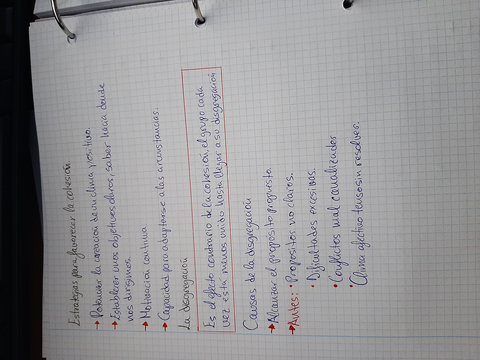 Estrategias para favorecer la cohesión
→ Potenciar la creación de un clima positivo.
→ Establecer unos objetivos claros, saber hacia donde
nos dirigimos.
→ Motivación continua
→ Capacidad para adaptarse a las circunstancias.
La disgregación
Es el efecto contrario de la cohesión, el grupo cada
vez está menos unido hasta llegar a su disgregación
Causas de la disgregación
→ Alcanzar el propósito propuesto
→ Antes: · Propositos no claros.
· Dificultades excesivas.
· Conflictos mal canalizados
Clima afectivo tenso sin resolver.